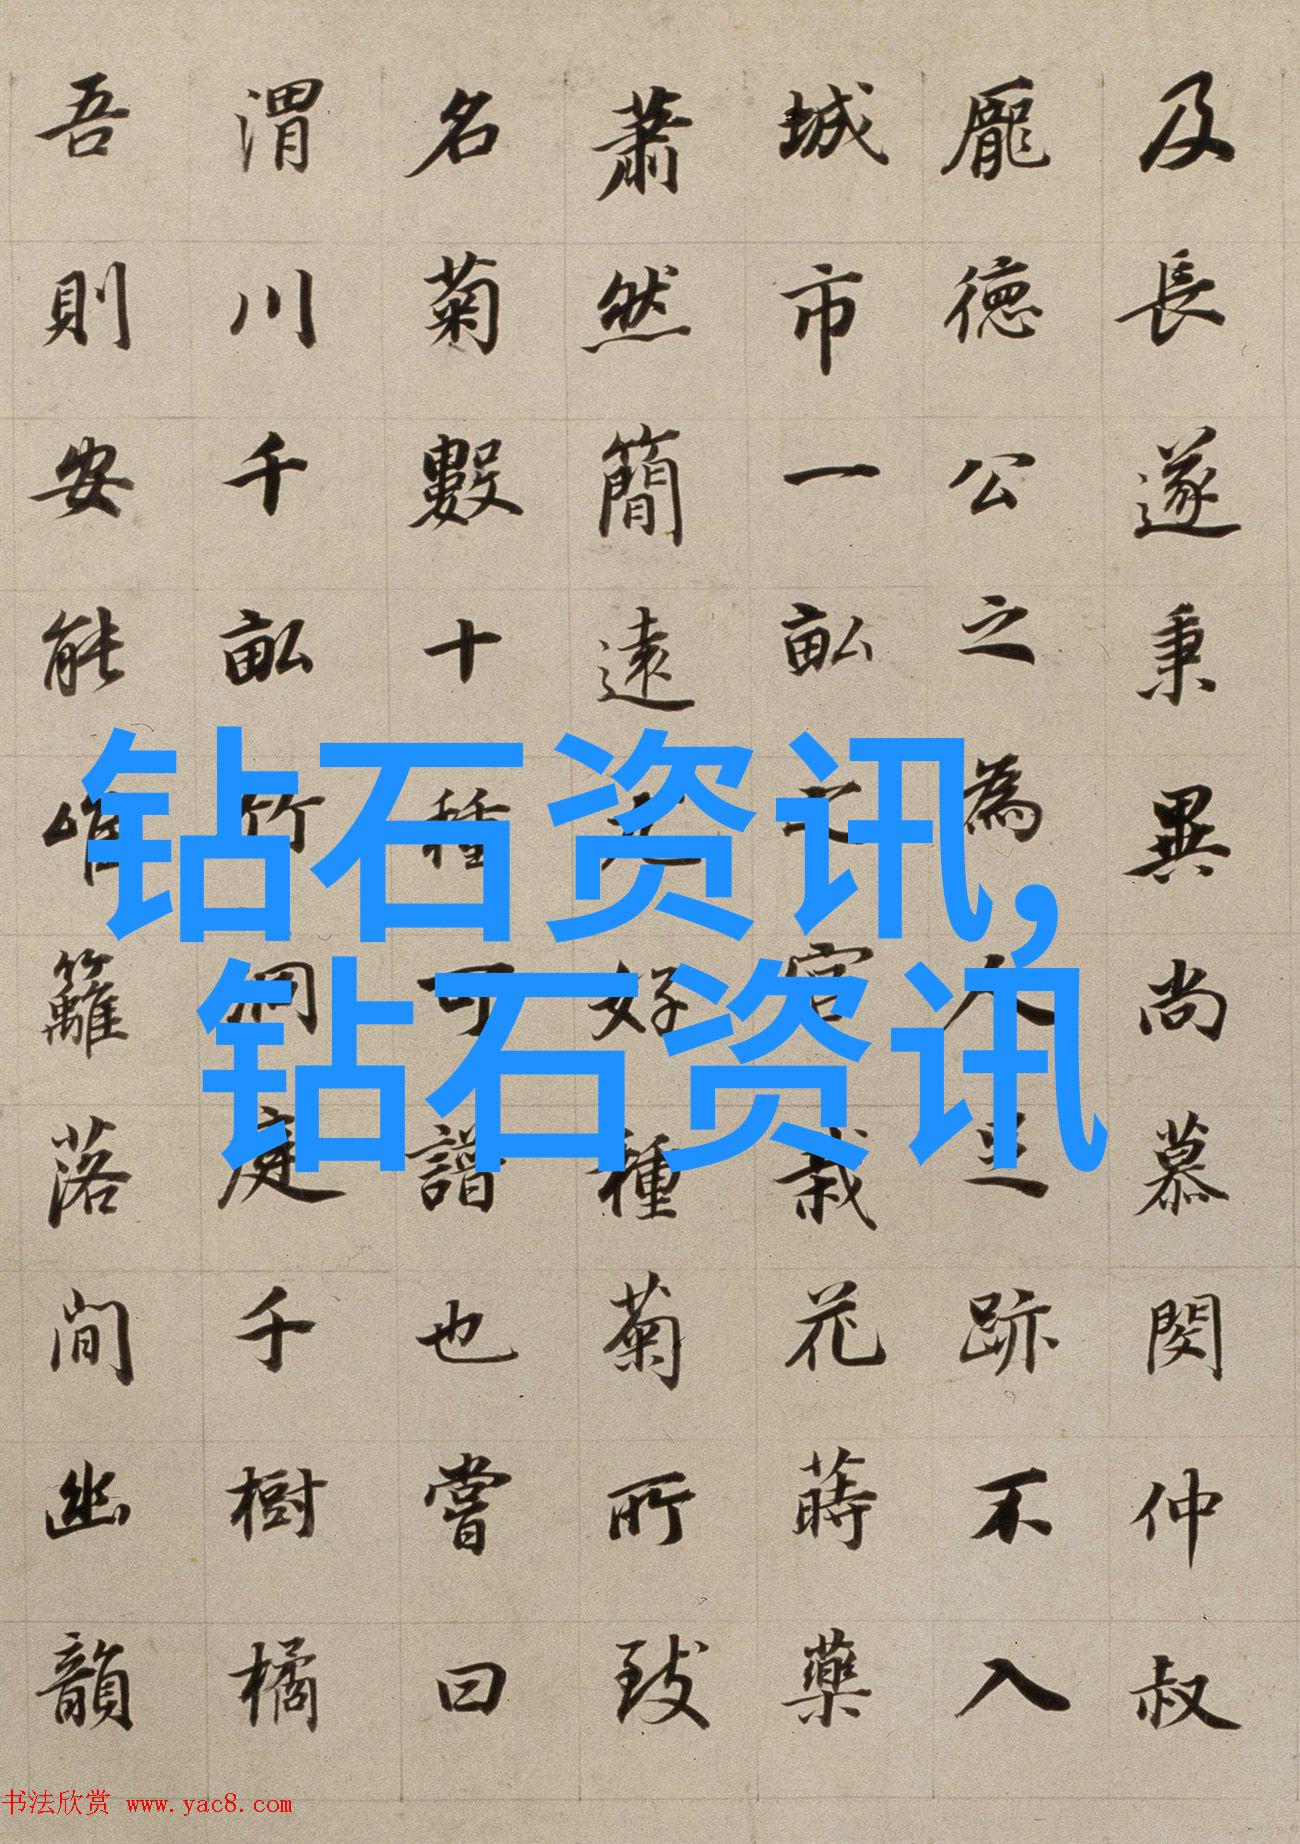 及長遂秉異尚慕閔仲叔
龐德公之為人足跡不入
城市一畝之宮栽花蒔藥
蕭然簡遠尤好種菊所致
名菊數十種可譜也嘗曰
渭川千畝竹洞庭千樹橘
吾則安能唯籬落間幽韻
钻石资讯,
钻石资讯
书法欣赏 www.yac8.com